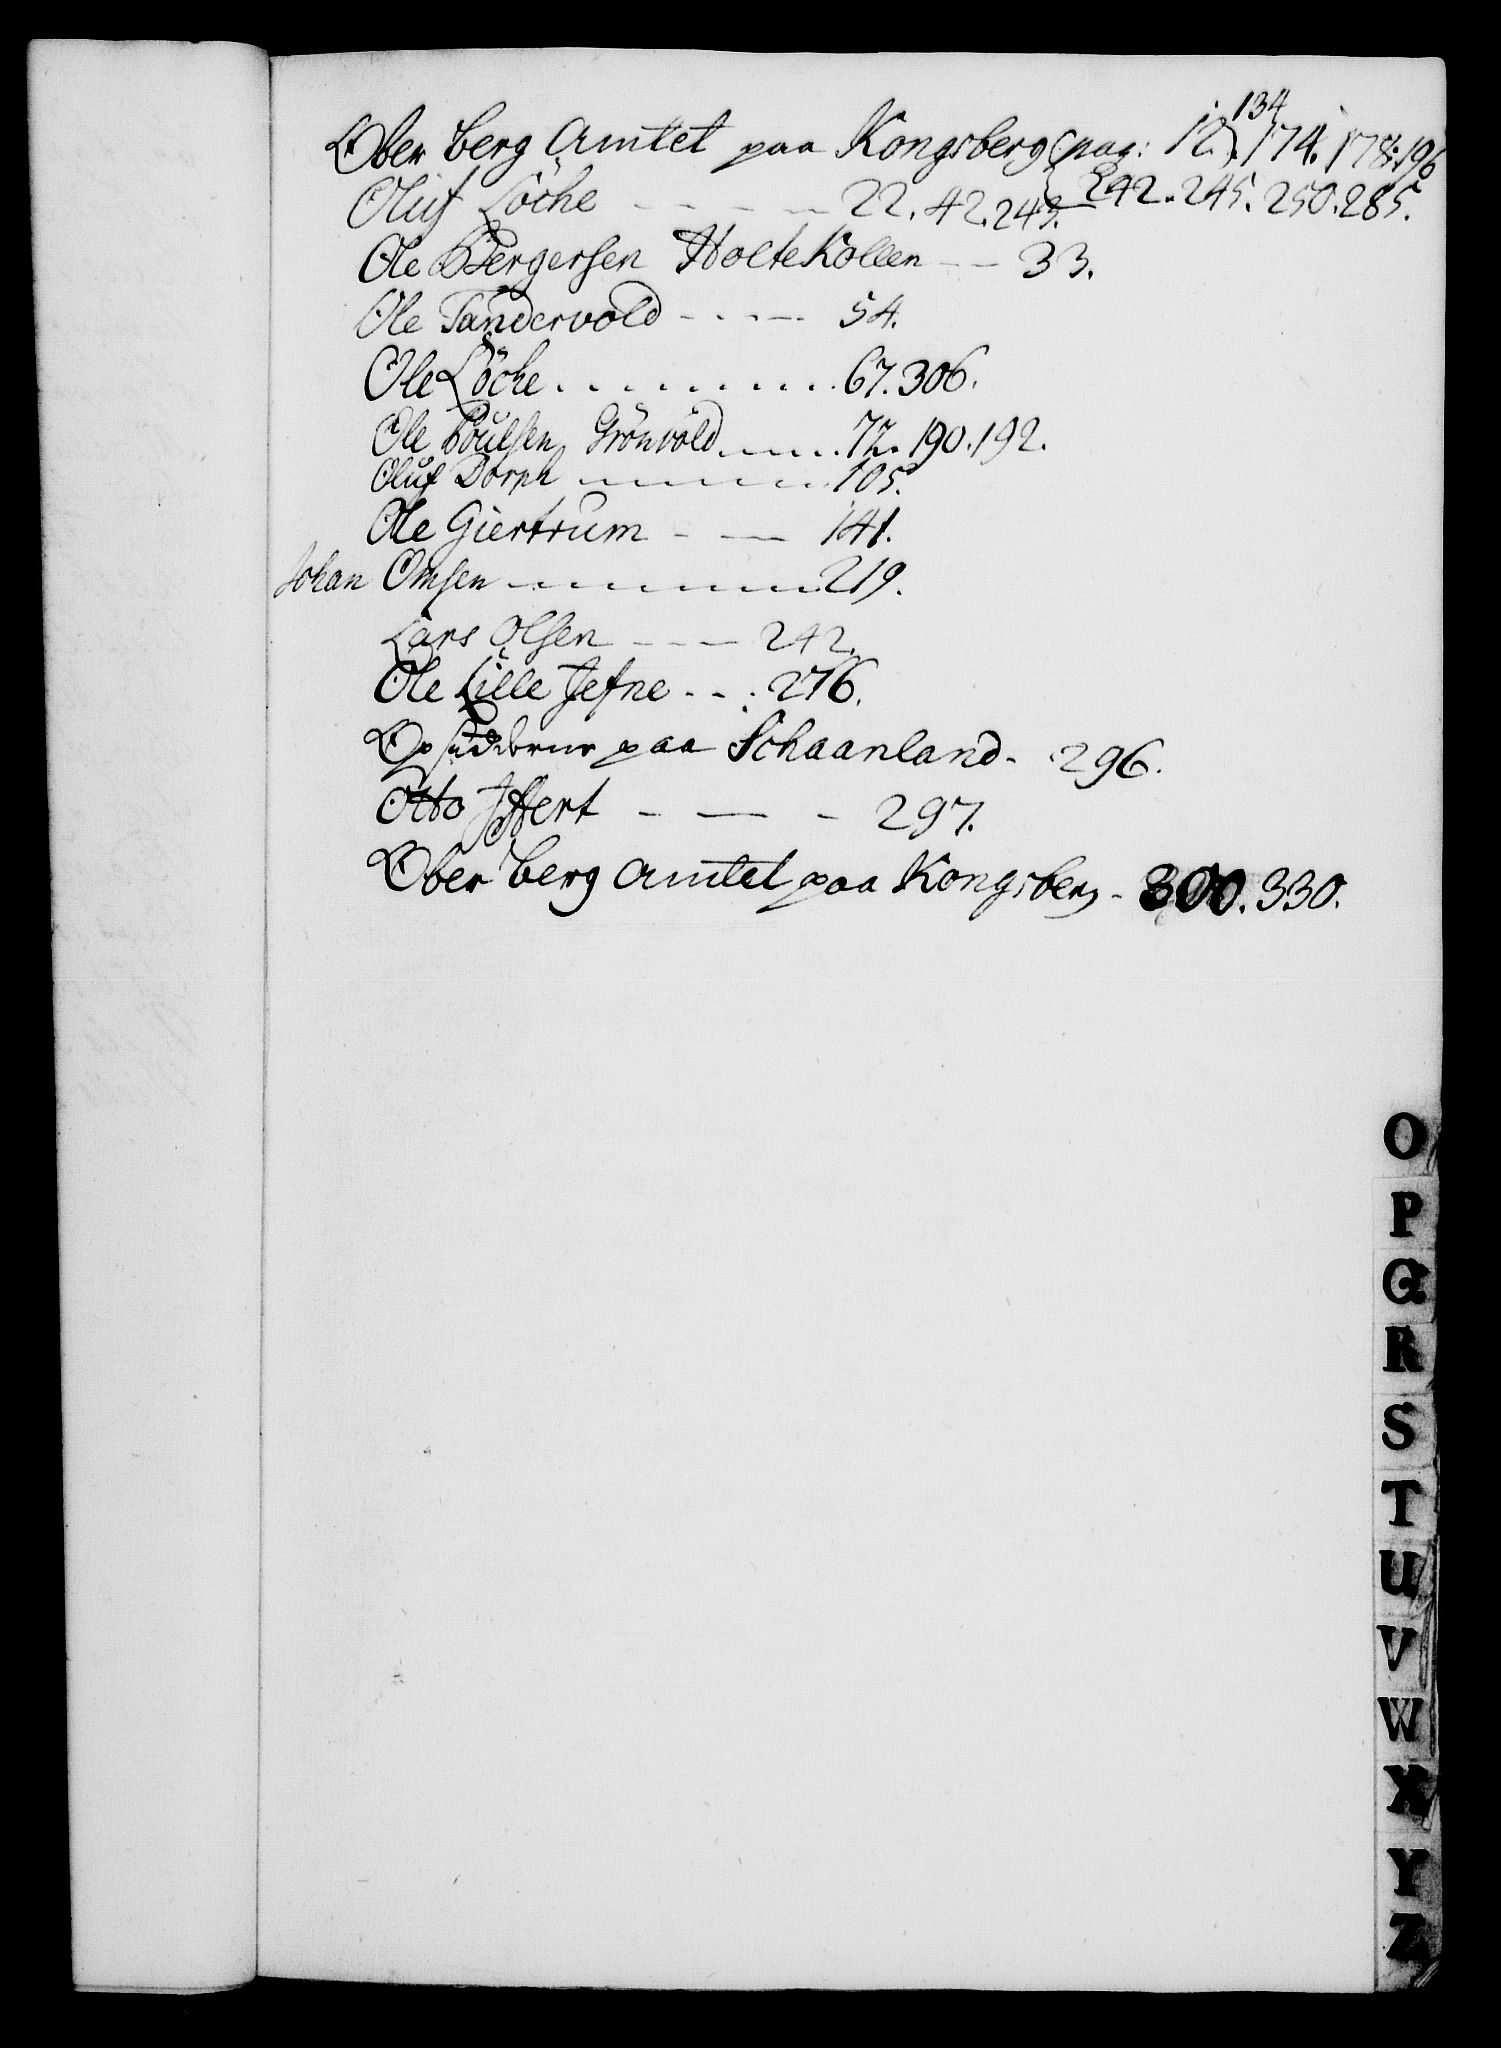 134
Ober berg Amtet paa Kongsberg pag: 12. 174. 178. 196
242. 245. 250. 285.
Oluf Löche - - - - - 22. 42. 243.
Ole Bergersen Holtekollen - - 33.
Ole Tandervold - - - - 54.
Ole Löche . . . . . . . . . 67. 306.
Ole Poulsen Grönvold - - - - 72. 190. 192.
Oluf Dorph - - - - - - 105.
Ole Giertrum - - - 141.
Johan Omsen - - - - - - - 219.
Lars Olsen - - - 242.
Ole Lille Jefne - - . 276.
Opsidderne paa Schaanland - 296.
Otto Iffert - - - 297.
Ober berg amtet paa Kongsberg - 300. 330.
O
P
Q
R
S
T
U
V
W
X
Y
Z